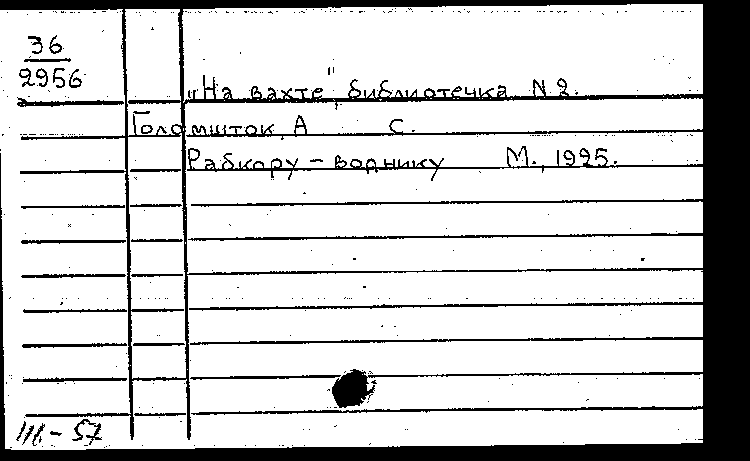 36
2956
„На вахте", библиотечка N 2.
Голомшток, А С.
Рабкору – воднику М., 1925.
57